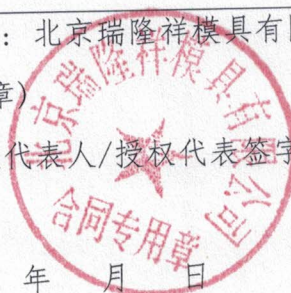 ：北京瑞隆祥模具有
章）
代表人/授权代表签字
年 月 日
北京瑞隆祥模具有限公司
合同专用章